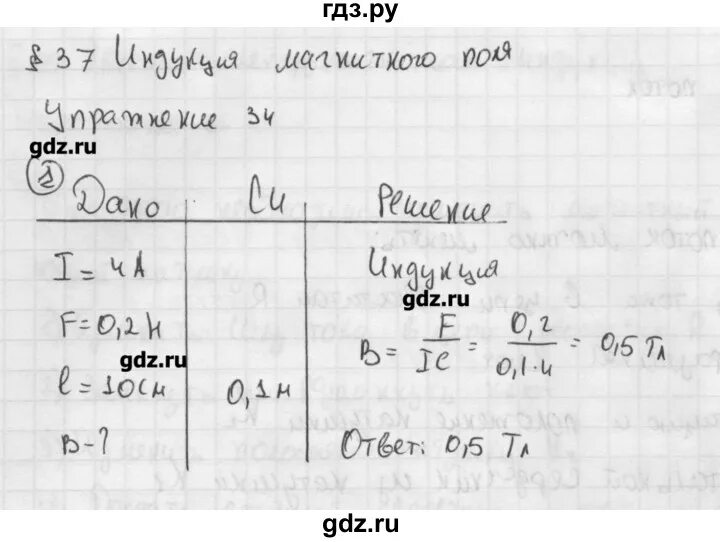 гдз.ру
§ 37 Индукция магнитного поля
Упражнение 34
gdz.ru
1
Дано СИ Решение
I = 4А Индукция
gdz.ru
F = 0,2 Н B = F/Iℓ = 0,2/0,1·4 = 0,5 Тл
gdz.ru
ℓ = 10см 0,1м
B - ? Ответ: 0,5 Тл
gdz.ru